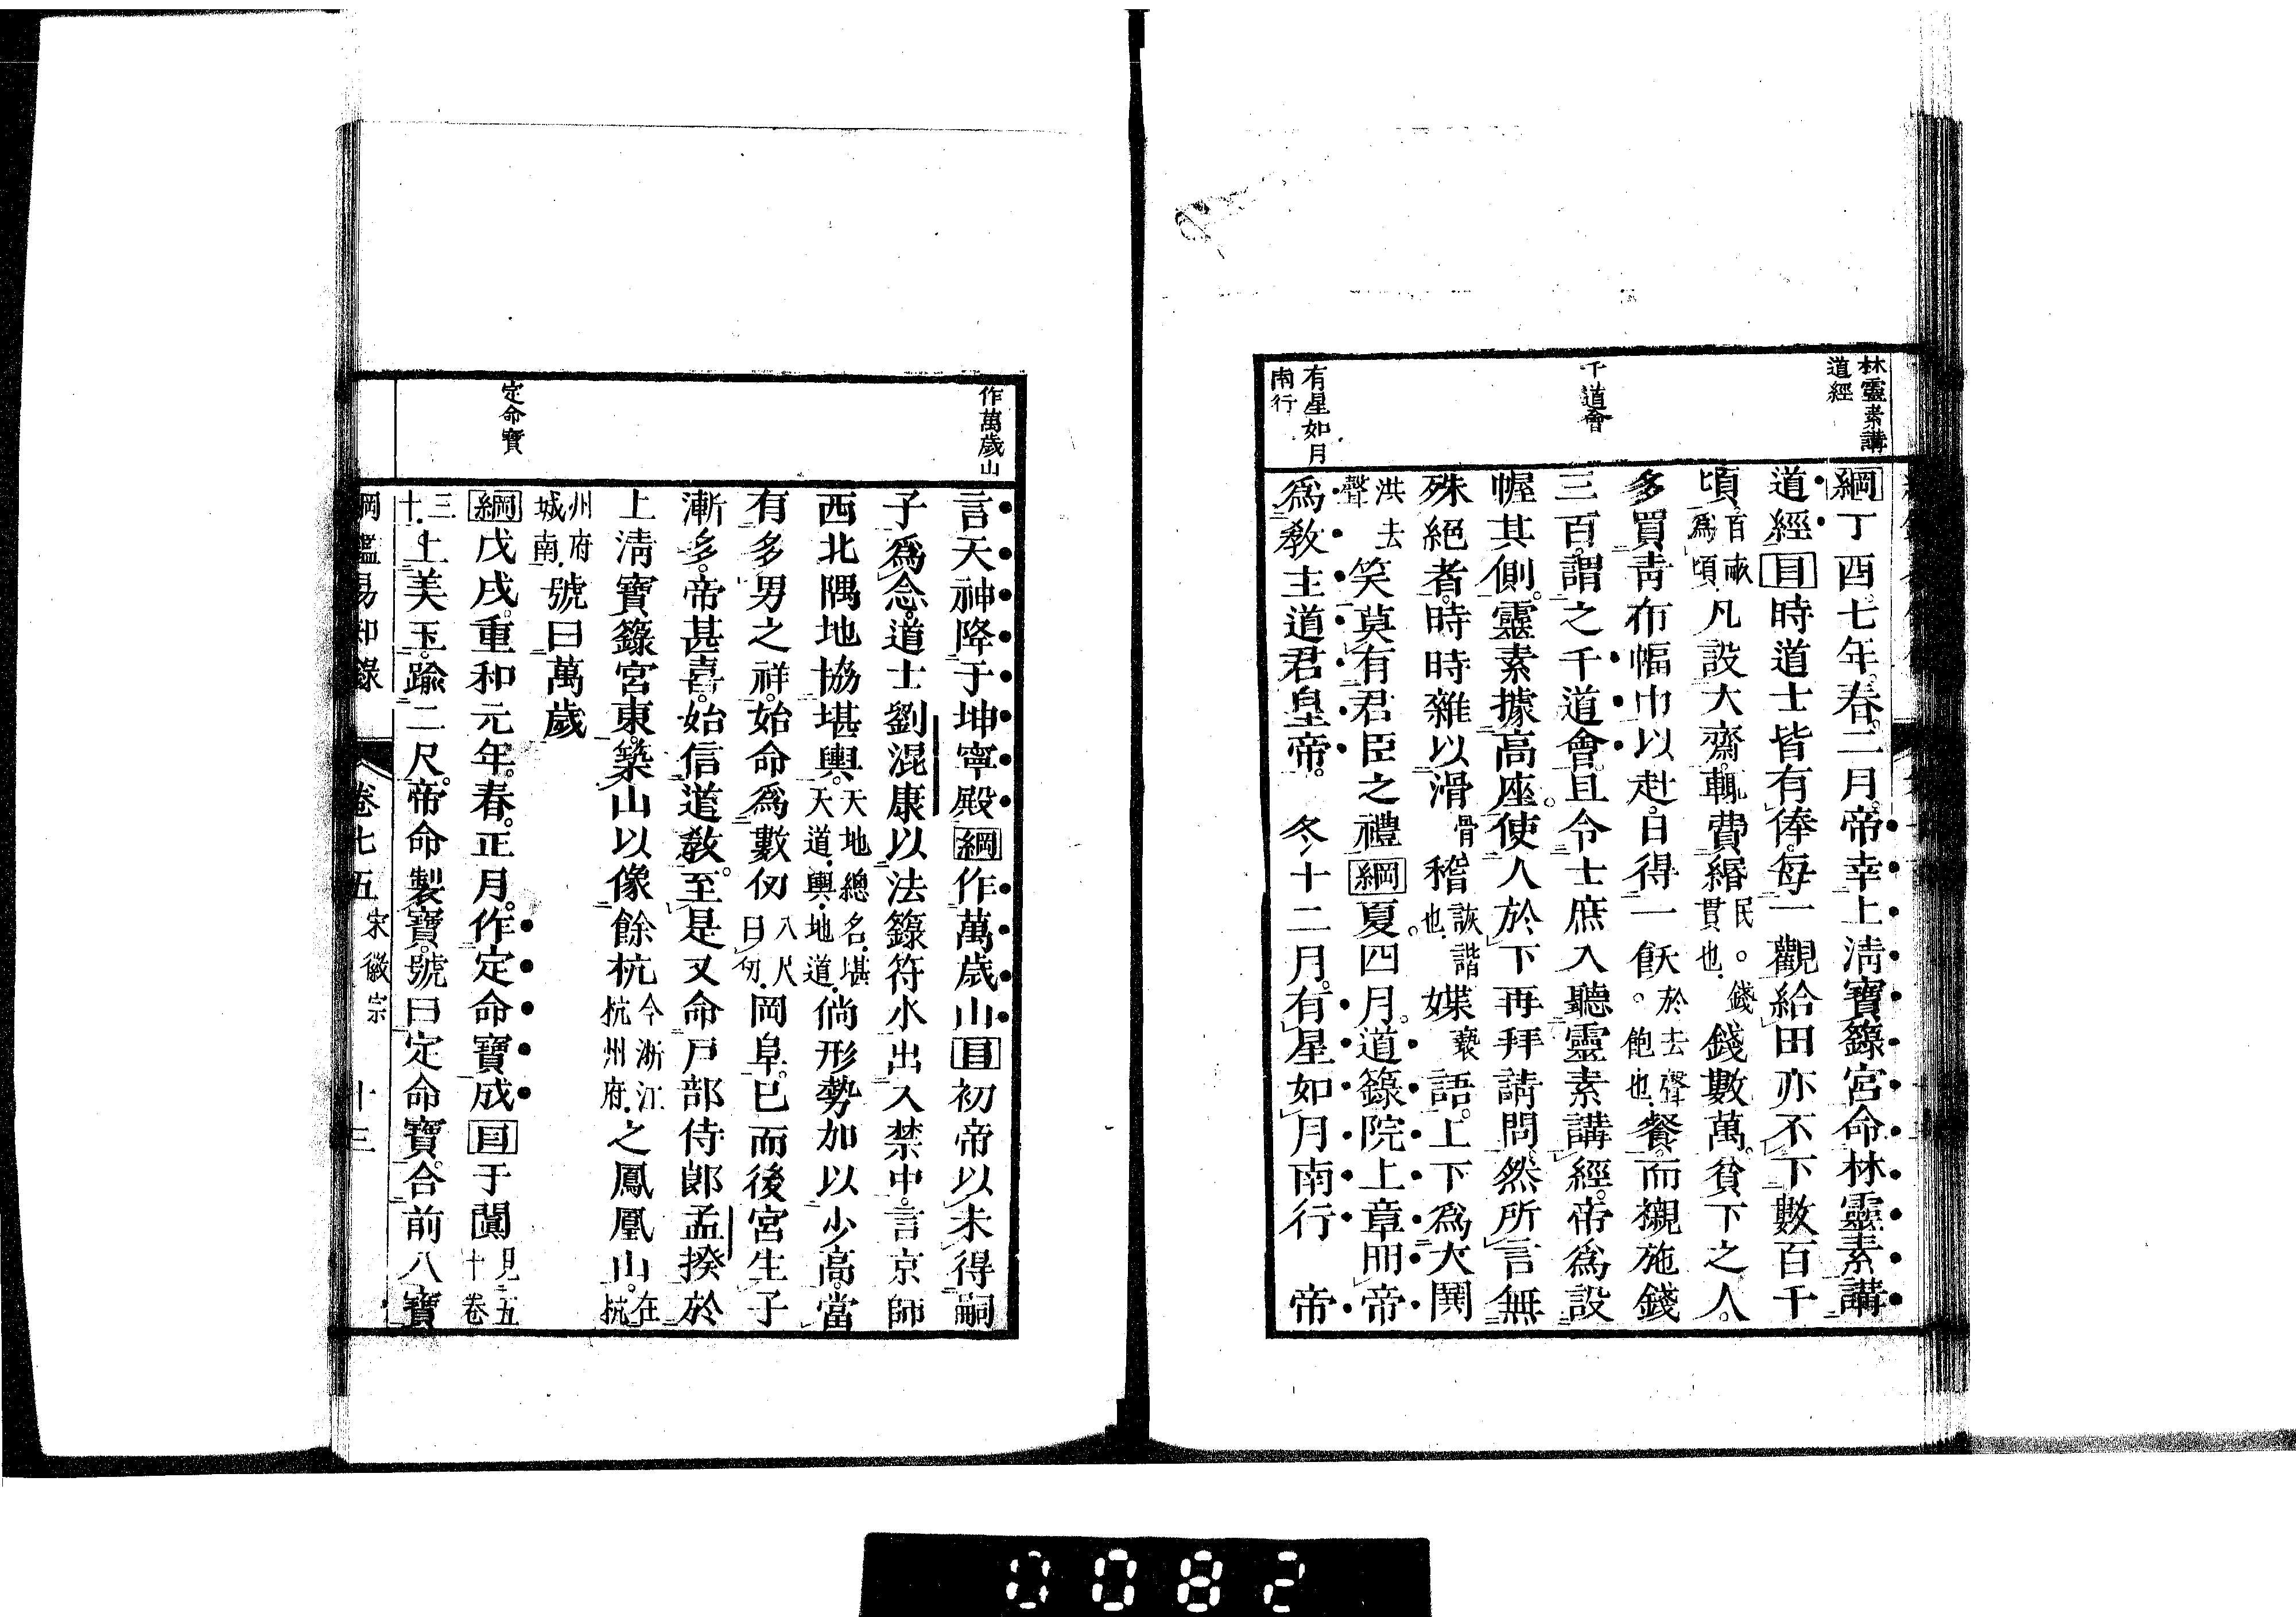 林靈素講
道經
千道會
有星如月
南行
綱丁酉七年。春。二月。帝幸上淸寶籙宮命林靈素講
道經目時道士皆有俸。每一觀給田亦不下數百千
頃。百畝爲頃。凡設大齋。輒費緡民。錢貫也。錢數萬。貧下之人。
多買靑布幅巾以赴。日得一飫於去聲。飽也。餐。而襯施錢
三百。謂之千道會。且令士庶入聽靈素講經。帝爲設
幄其側。靈素據高座。使人於下再拜請問。然所言無
殊絕者。時時雜以滑骨稽詼諧也。媟褻語。上下爲大鬨
洪去聲笑。莫有君臣之禮綱夏。四月。道籙院上章冊帝
爲敎主道君皇帝。　冬十二月。有星如月南行　帝
作萬歲山
定命寶
言天神降于坤寧殿綱作萬歲山目初帝以未得嗣
子爲念。道士劉混康以法籙符水出入禁中。言京師
西北隅地協堪輿。天地總名。堪天道。輿地道。倘形勢加以少高。當
有多男之祥。始命爲數仞八尺曰仞。岡阜。已而後宮生子
漸多。帝甚喜。始信道敎。至是又命戶部侍郎孟揆於
上淸寶籙宮東。築山以像餘杭今浙江杭州府。之鳳凰山。在杭
州府城南。號曰萬歲
綱戊戌。重和元年。春。正月。作定命寶成目于闐見五十卷
三十。上美玉。踰二尺。帝命製寶。號曰定命寶。合前八寶
綱鑑易知錄　卷七五　宋徽宗　十三
0082